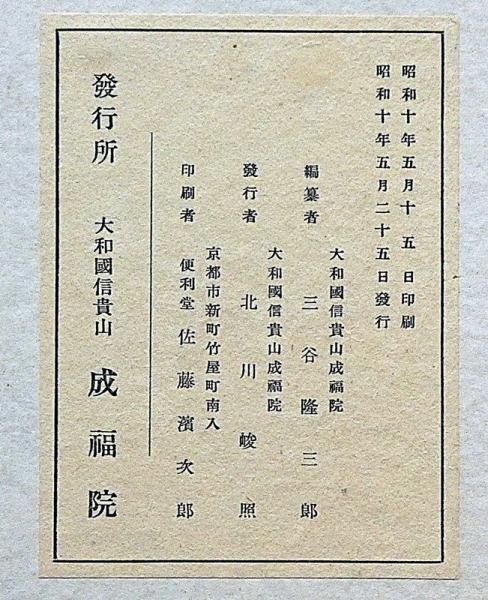 昭和十年五月十五日印刷
昭和十年五月二十五日發行
大和國信貴山成福院
編纂者 三谷隆三郎
大和國信貴山成福院
發行者 北川峻照
京都市新町竹屋町南入
印刷者 便利堂 佐藤濱次郎
發行所 大和國信貴山 成福院